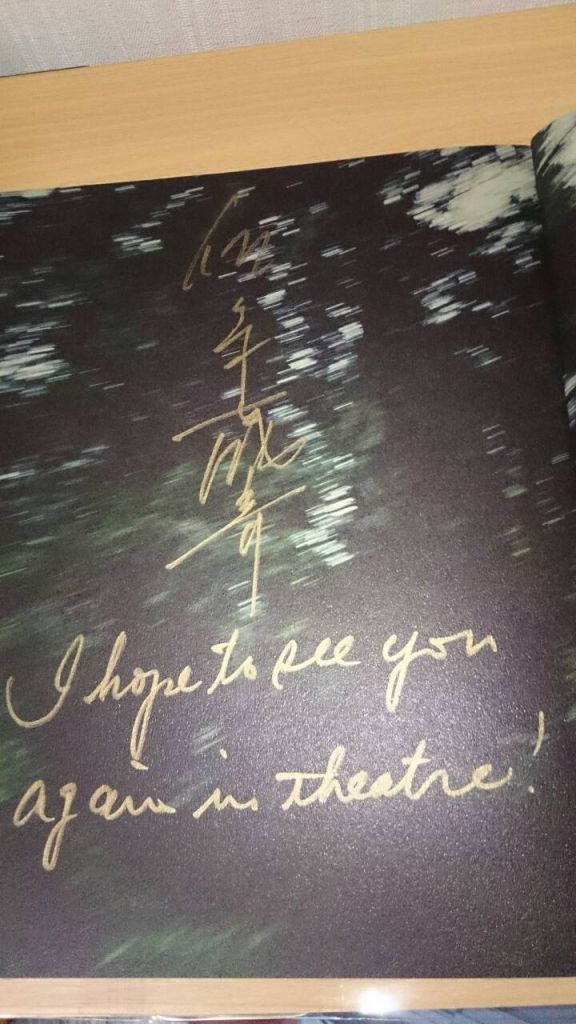 I hope to see you
again in theatre!